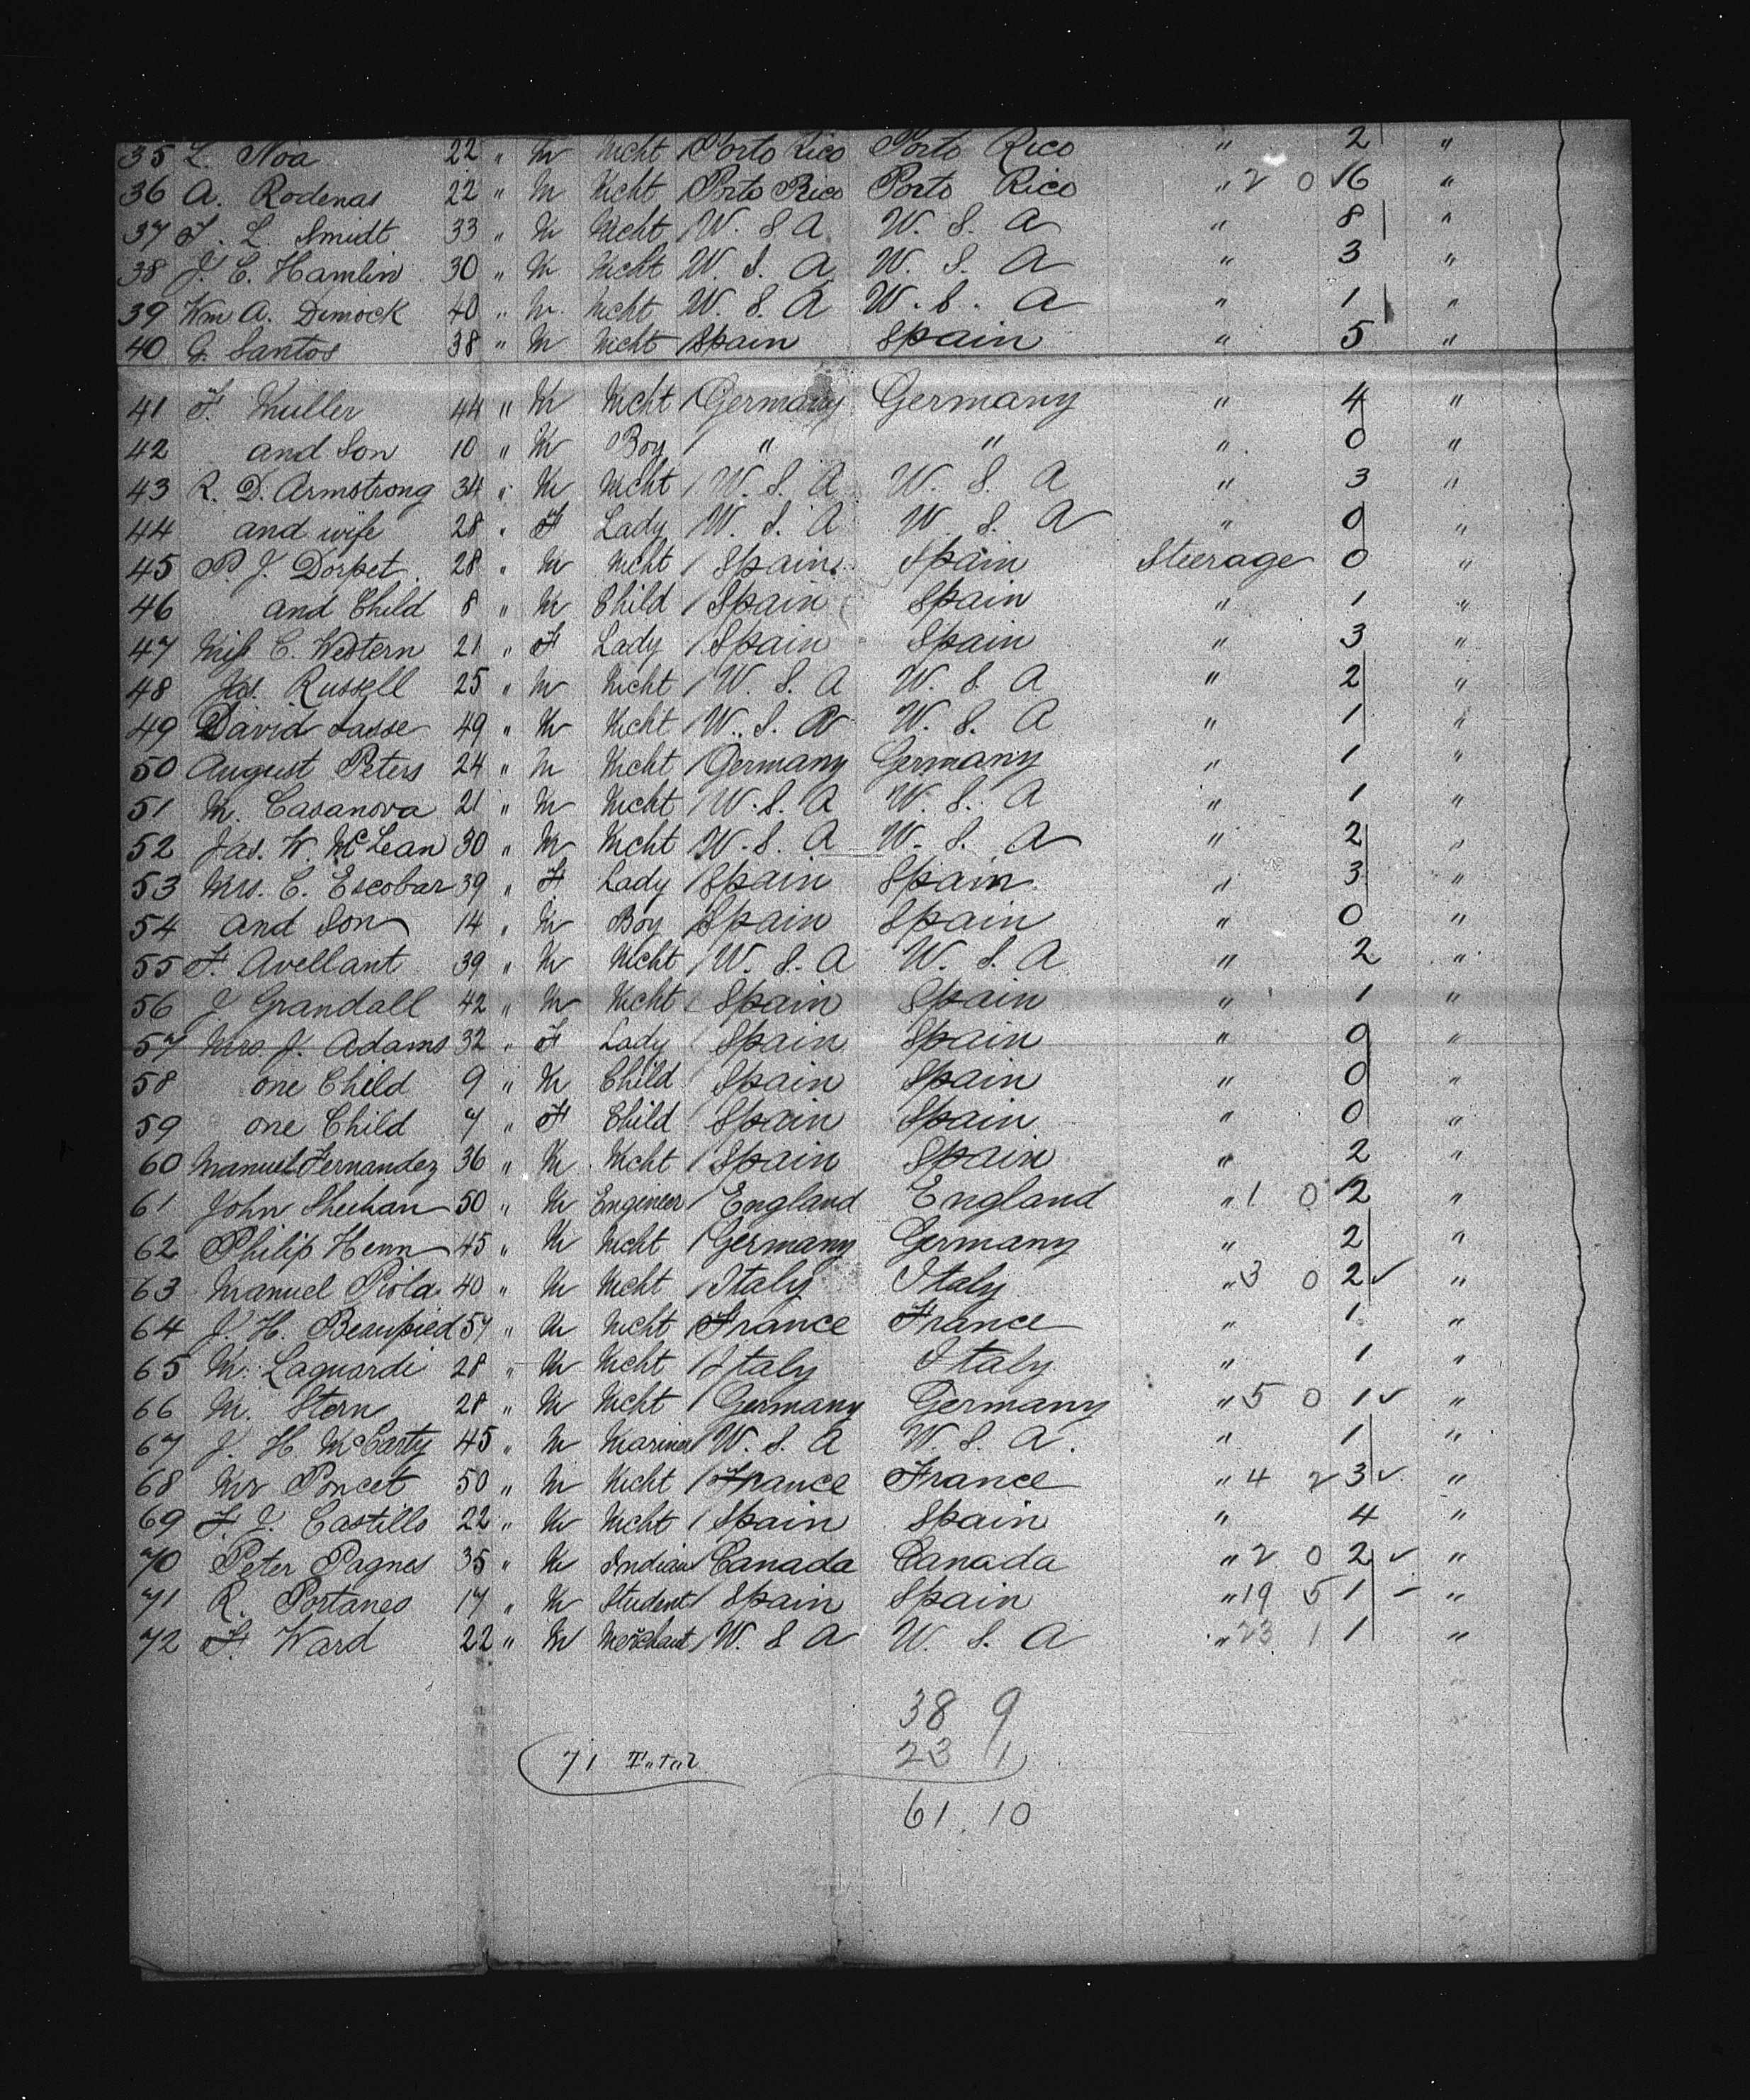 35 L. Noa 22 " M Mcht Porto Rico Porto Rico " 2 "
36 A. Rodenas 22 " M Mcht Porto Rico Porto Rico " 2 0 16 "
37 F. L. Smidt 33 " M Mcht U. S. A U. S. A " 8 "
38 J. E. Hamlin 30 " M Mcht U. S. A U. S. A " 3 "
39 Wm A. Dimock 40 " M Mcht U. S. A U. S. A " 1 "
40 G. Santos 38 " M Mcht Spain Spain " 5 "
41 F. Muller 44 " M Mcht Germany Germany " 4 "
42 and Son 10 " M Boy " " " 0 "
43 R. D. Armstrong 34 " M Mcht U. S. A U. S. A " 3 "
44 and wife 28 " F Lady U. S. A U. S. A " 0 "
45 P. J. Dorpet 28 " M Mcht Spain Spain Steerage 0 "
46 and Child 8 " M Child Spain Spain " 1 "
47 Miss C. Western 21 " F Lady Spain Spain " 3 "
48 Jas. Russell 25 " M Mcht U. S. A U. S. A " 2 "
49 David Sasse 49 " M Mcht U. S. A U. S. A " 1 "
50 August Peters 24 " M Mcht Germany Germany " 1 "
51 M. Casanova 21 " M Mcht U. S. A U. S. A " 1 "
52 Jas. W. McLean 30 " M Mcht U. S. A U. S. A " 2 "
53 Mrs. C. Escobar 39 " F Lady Spain Spain " 3 "
54 and Son 14 " M Boy Spain Spain " 0 "
55 F. Avellant 39 " M Mcht U. S. A U. S. A " 2 "
56 J Grandall 42 " M Mcht Spain Spain " 1 "
57 Mrs. J. Adams 32 " F Lady Spain Spain " 0 "
58 one Child 9 " M Child Spain Spain " 0 "
59 one Child 7 " F Child Spain Spain " 0 "
60 Manuel Fernandez 36 " M Mcht Spain Spain " 2 "
61 John Sheehan 50 " M Engineer England England " 1 0 2 "
62 Philip Henn 45 " M Mcht Germany Germany " 2 "
63 Manuel Piola 40 " M Mcht Italy Italy " 3 0 2 ✓ "
64 J. H. Beaupied 57 " M Mcht France France " 1 "
65 M. Laguardi 28 " M Mcht Italy Italy " 1 "
66 M. Stern 28 " M Mcht Germany Germany " 5 0 1 ✓ "
67 J. H. McCarty 45 " M Mariner U. S. A U. S. A. " 1 "
68 Mr Poncet 50 " M Mcht France France " 4 2 3 ✓ "
69 F. J. Castillo 22 " M Mcht Spain Spain " 4 "
70 Peter Pagnes 35 " M Indian Canada Canada " 2 0 2 ✓ "
71 R. Portanes 17 " M Student Spain Spain " 19 5 1 - "
72 F. Ward 22 " M Merchant U. S A U. S. A " 23 1 1 "
38 9
71 Total 23 1
61. 10